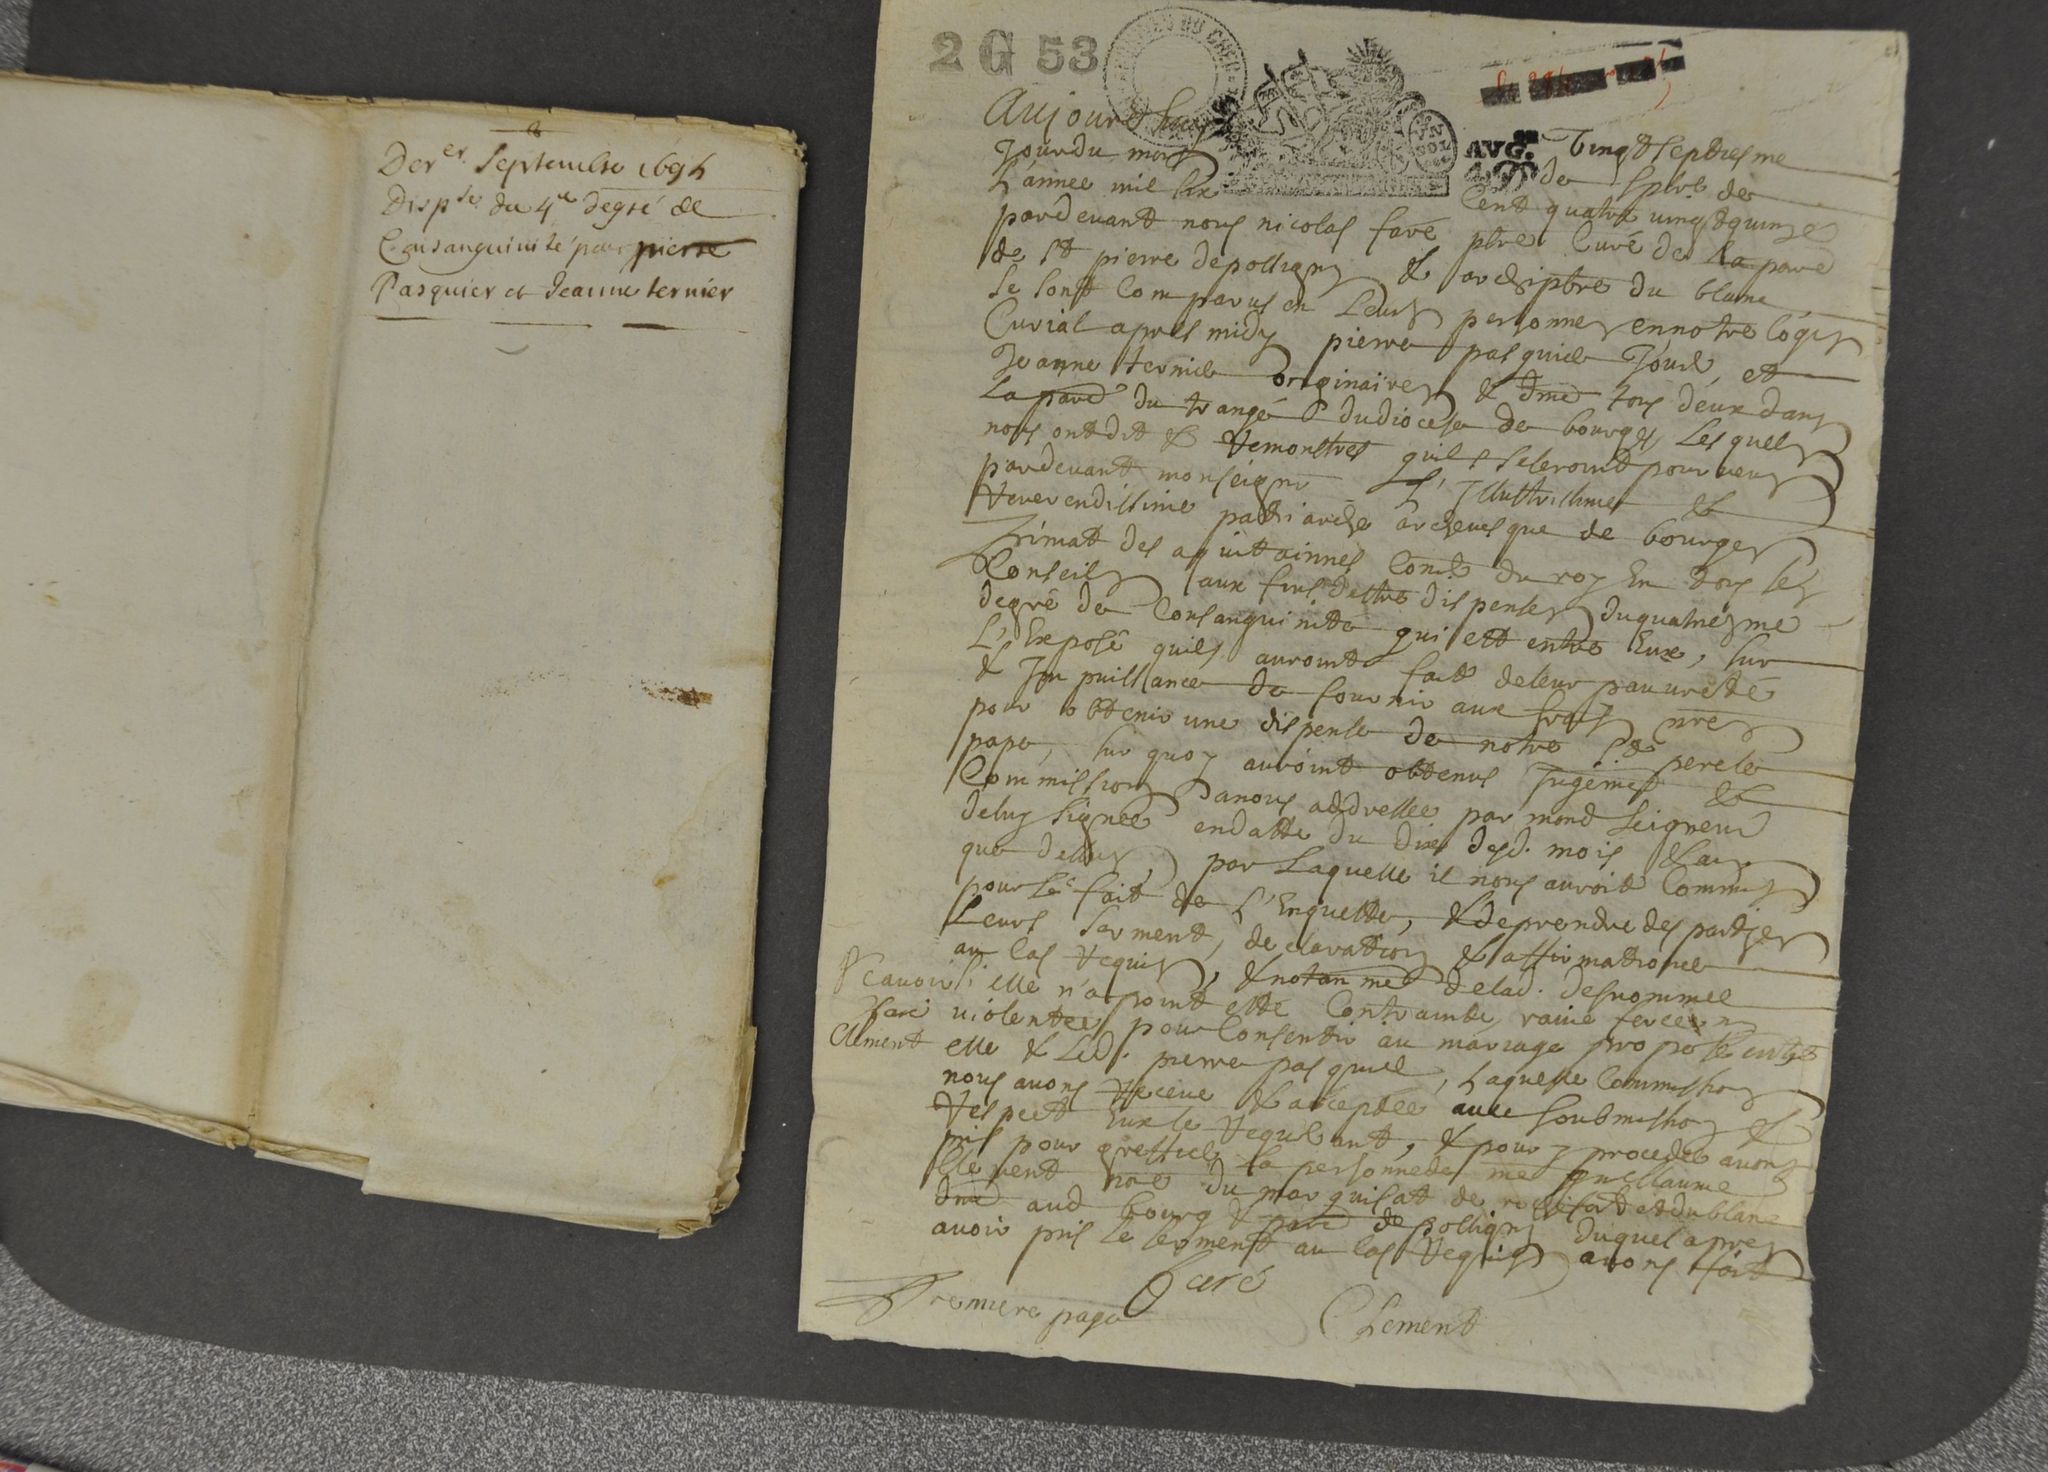 Der.er Septembre 1695
Disp.se du 4e degré de
Consanguinité pour pierre
Pasquier et Jeanne ternier
2 G 53
AVG.on
Aujourdhuy Vingt septiesme
Jour du mois de sptbre de
L'annee mil six Cent quatre vingt quinze
pardevant nous nicolas faré ptre Curé de la parr
de st pierre de polligny & archiptre du blanc
se sont Comparus en Leurs personnes en notre logis
Curial apres midy pierre pasquier et
Jeanne ternier originaires & dmts tous deux dans
La parr du trangé du diocese de bourges Lesquels
nous ont dit & remonstres quils se seroint pourveus
pardevant monseignr L'Illustrissime &
reverendissime patriarche archevesque de bourges
Primat des aquitainnes Cons.r du roy En tous ses
Conseils aux fins destre dispenses du quatriesme
degré de Consanguinite qui est entre Eux, sur
L'Exposé quils auroint fait de leur pauvreté
& Impuissance de fournir aux frais nres
pour obtenir une dispense de notre st pere le
pape, sur quoy auroint obtenus Jugemet &
Commission a nous addressee par mond Seigneur
de luy Signee en datte du dix desd. mois & an
que dessus, par Laquelle il nous auroit Commis
pour le fait de L'Enqueste, & de prendre des parties
Leurs serment, declaration & affirmation
au cas requis, & notanmet de lad. desnommee
Scavoir si elle n'a point esté Contrainte, ravie forcee ny
faré violentee pour Consentir au mariage proposé entre
Clement elle & Led. pierre pasquier, Laquelle Commission
nous avons receue & acceptée avec soubmission &
respect Eux le requerant, & pour y proceder avons
pris pour greffier la personne de me guillaume
Clement nore du marquisat de et du blanc
dmt aud bourg & parr de polligny duquel apres
avoir pris le serment au cas requis avons fait
faré
Premiere page Clement